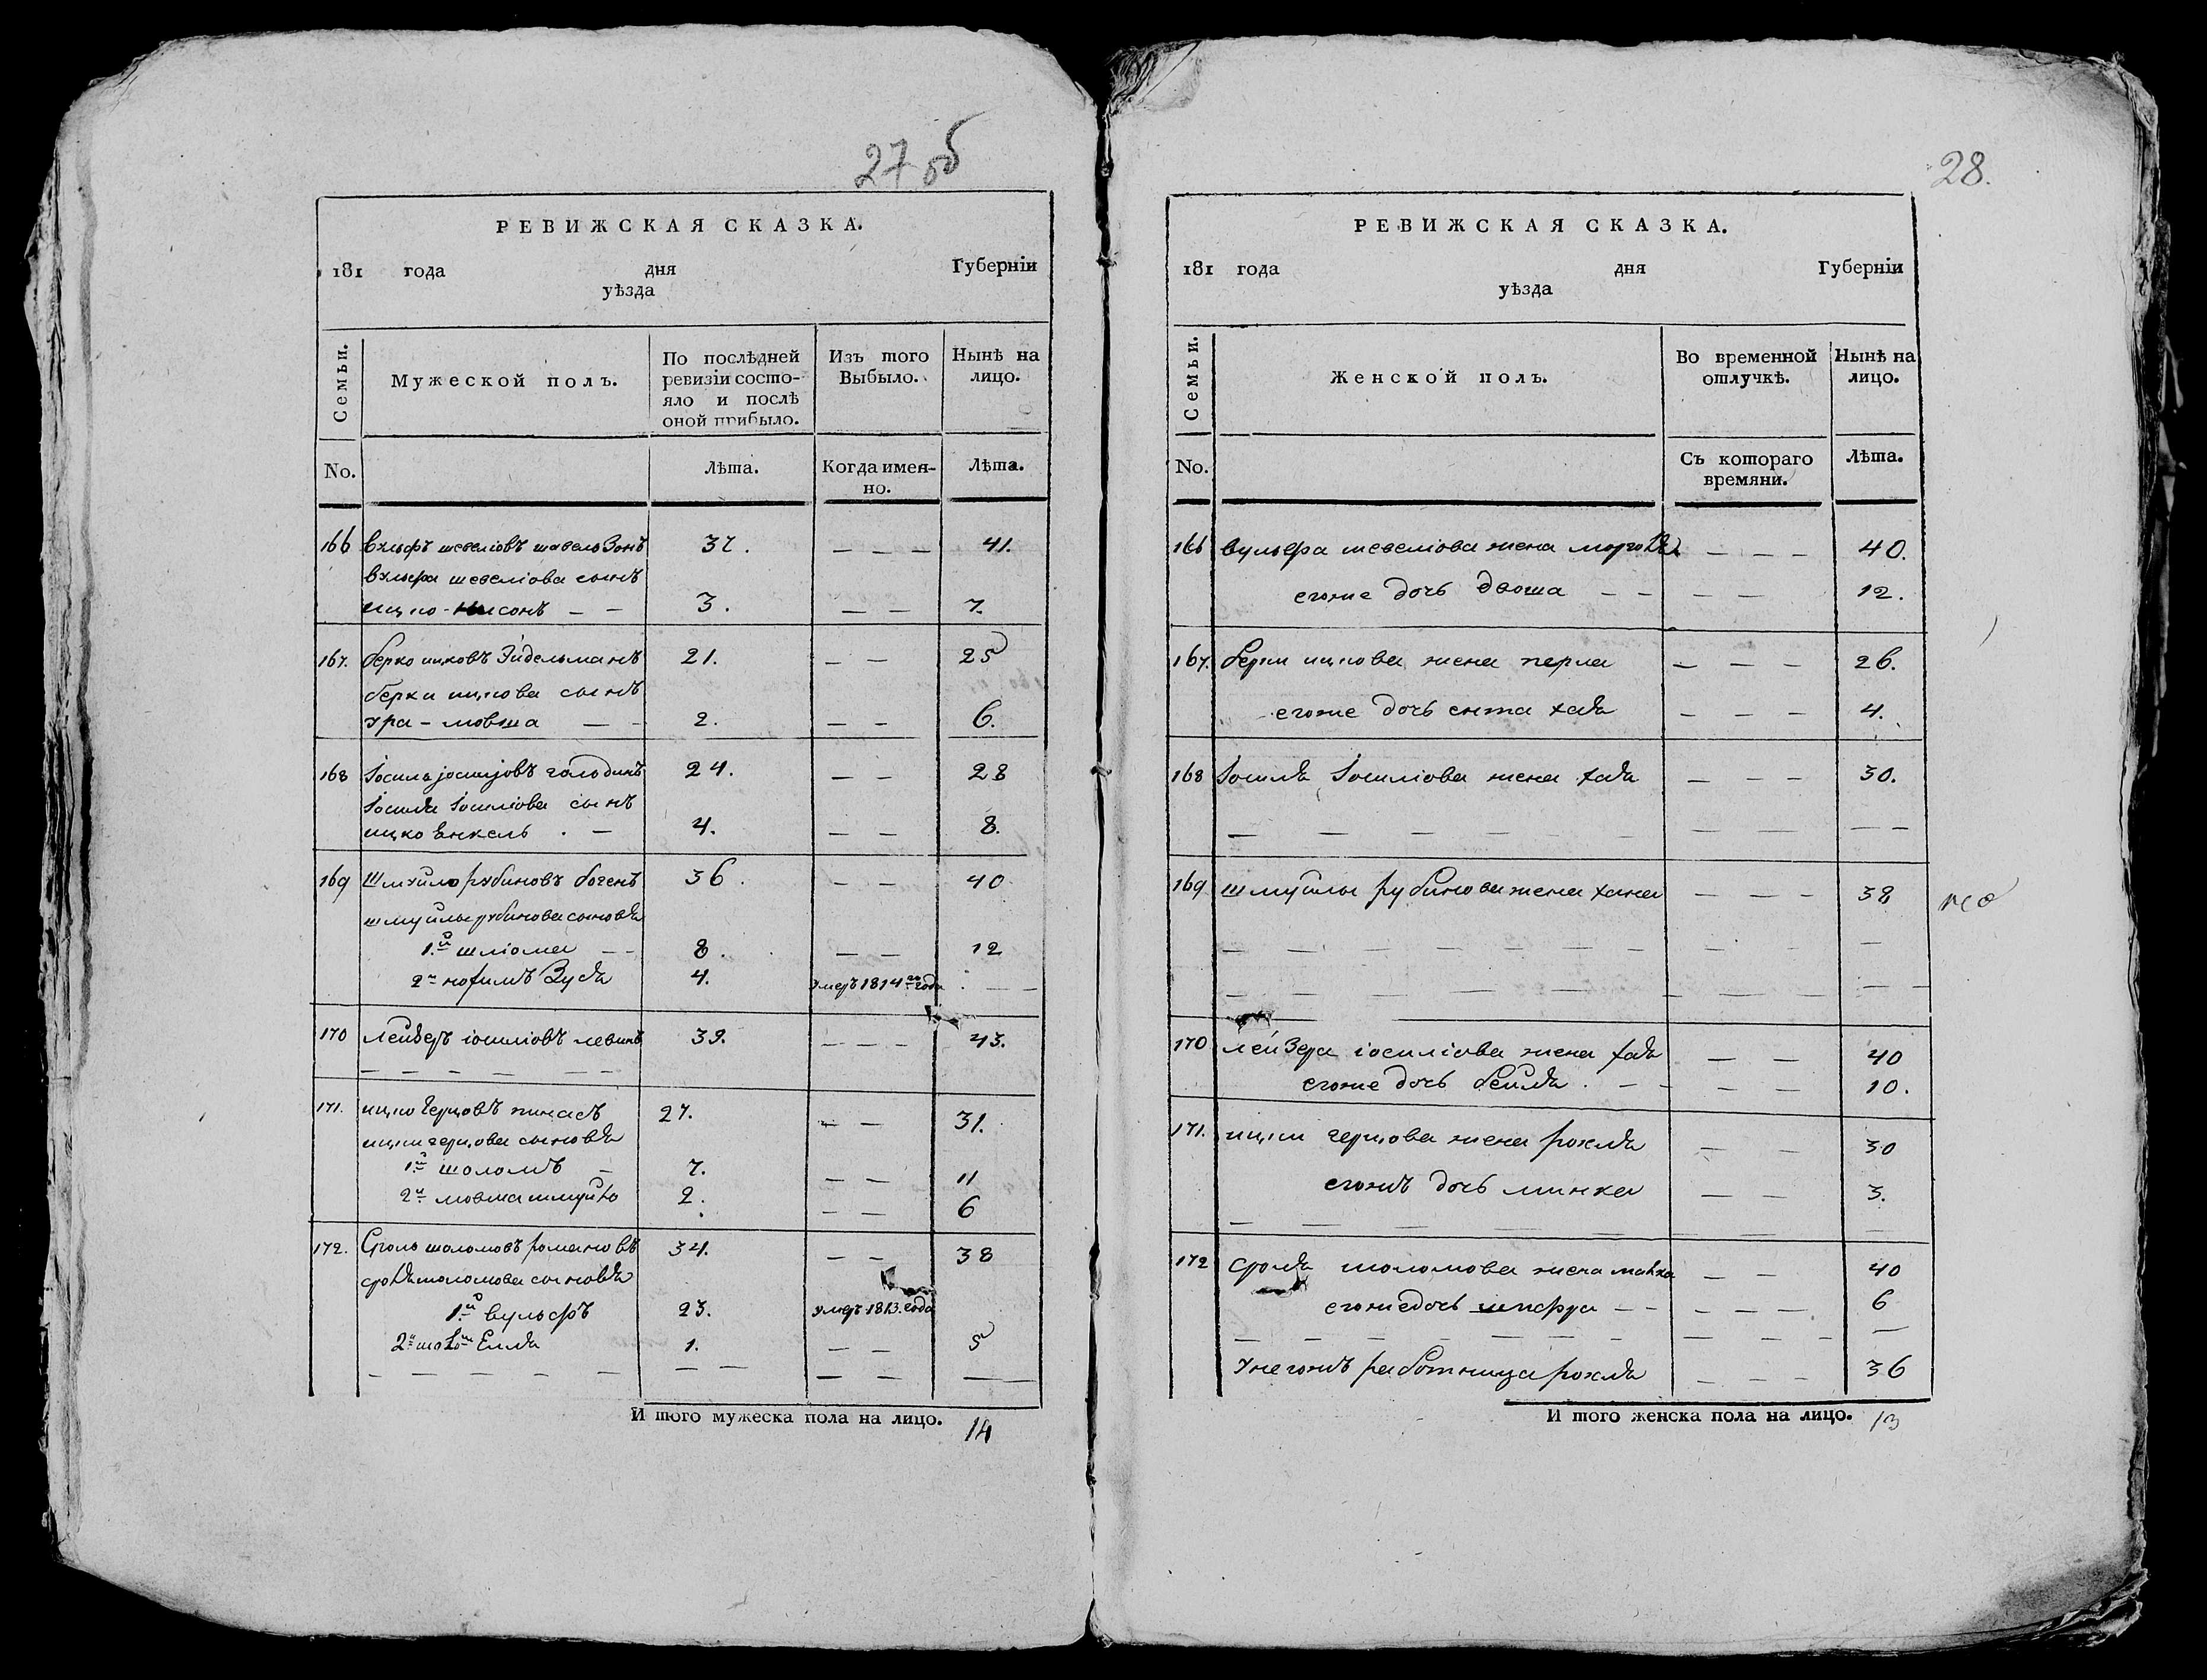 27 об
РЕВИЖСКАЯ СКАЗКА.
181 года дня Губерніи
уѣзда
Семьи. Мужеской полъ. По послѣдней ревизіи состо-яло и послѣ оной прибыло. Изъ того Выбыло. Нынѣ на лицо.
No. Лѣта. Когда имен-но. Лѣта.
166 вульфъ шевеліовъ 37. — — — 41.
вульфа шевеліова сынъ
ицко-нисонъ — — 3. — — 7.
167. берко ицковъ Эйдельманъ 21. — — 25
берки ицкова сынъ
ура-мовша — — 2. — — 6.
168 Іосиль голодинъ 24. — — 28
Іосиля Іосиліова сынъ
ицко Енкель . — 4. — — 8.
169 Шмуйло рубиновъ богенъ 36. — — 40.
шмуйлы рубинова сыновья
1й шліома — — 8. — — 12
2й 4. умеръ 1814го года . — —
170 лейзеръ іосиліовъ левинъ 39. — — — 43.
— — — — — —
171. ицко герцовъ пинасъ 27. — — 31.
ицки герцова сыновья
1й шоломъ — 7. — — 11
2й мовша шмуйло 2. — — 6
172. Сроль шоломовъ романовъ 34. — — 38
сроля шоломова сыновья
1й вульфъ 23. умеръ 1813. года
2й 1. — — 5
— — — — — — — — — —
И того мужеска пола на лицо. 14
28.
РЕВИЖСКАЯ СКАЗКА.
181 года дня Губерніи
уѣзда
Семьи. Женской полъ. Во временной отлучкѣ. Нынѣ на лицо.
No. Съ котораго времяни. Лѣта.
166 вульфа шевеліова жена — — — 40.
егоже дочь двоша — — — — 12.
167. берки ицкова жена перла — — — 26.
егоже дочь сита хая — — — 4.
168 Іосиля Іосиліова жена хая — — — 30.
— — — — — — — — — —
169 шмуйлы рубинова жена хана — — — 38
— — — — — — — — — —
— — — — — — — — — — —
170 лейзера іосиліова жена хая — — 40
егоже дочь бейля . — — — — 10.
171. ицки герцова жена рохля — — 30
егожъ дочь минка — — 3.
— — — — — — —
172 сроля шоломова жена — — 40
егоже дочь шифра — — — — — 6
— — — — — — — — — —
унегожъ работница рохля — — — 36
И того женска пола на лицо. 13